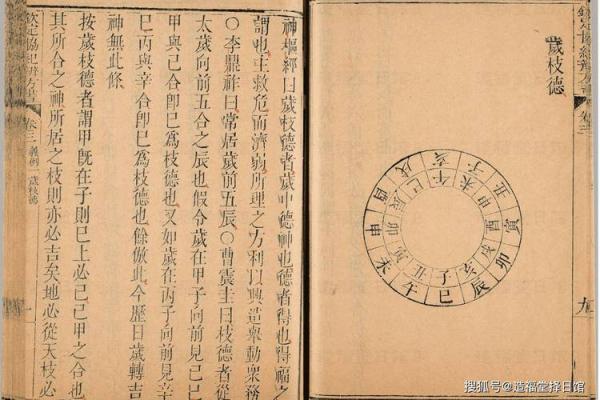 欽定協紀辨方書
卷三
歲枝德
子丑寅卯辰巳午未申酉戌亥
巳午未申酉戌亥子丑寅卯辰
九
神樞經曰歲枝德者歲中德神也德者得也得福之
謂也主救危而濟弱所理之方利以興造舉動衆務
○李鼎祚曰常居歲前五辰○曹震圭曰枝德者從
太歲向前五合之辰也假令歲在甲子向前見己巳
甲與己合卽巳爲枝德也又如歲在丙子向前見辛
巳丙與辛合卽巳爲枝德也餘倣此今歷日歲轉吉
神無此條
按歲枝德者謂甲旣在子則巳上必己己甲之合也
其所合之神所居之枝則亦必吉矣地必從天枝必
欽定協紀辨方書
卷三 義例一 歲枝德
搜狐号@造福堂择日馆